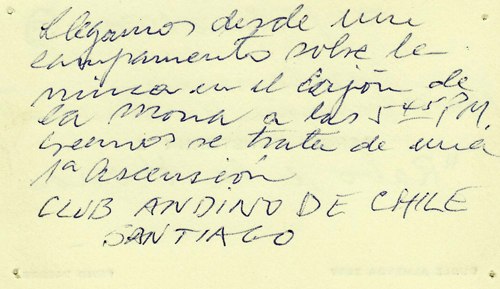 Llegamos desde un
campamento sobre la
minca en el Cajón de
la Mona a las 5 45 P.M.
Creemos se trata de una
1ª Ascensión
CLUB ANDINO DE CHILE
SANTIAGO